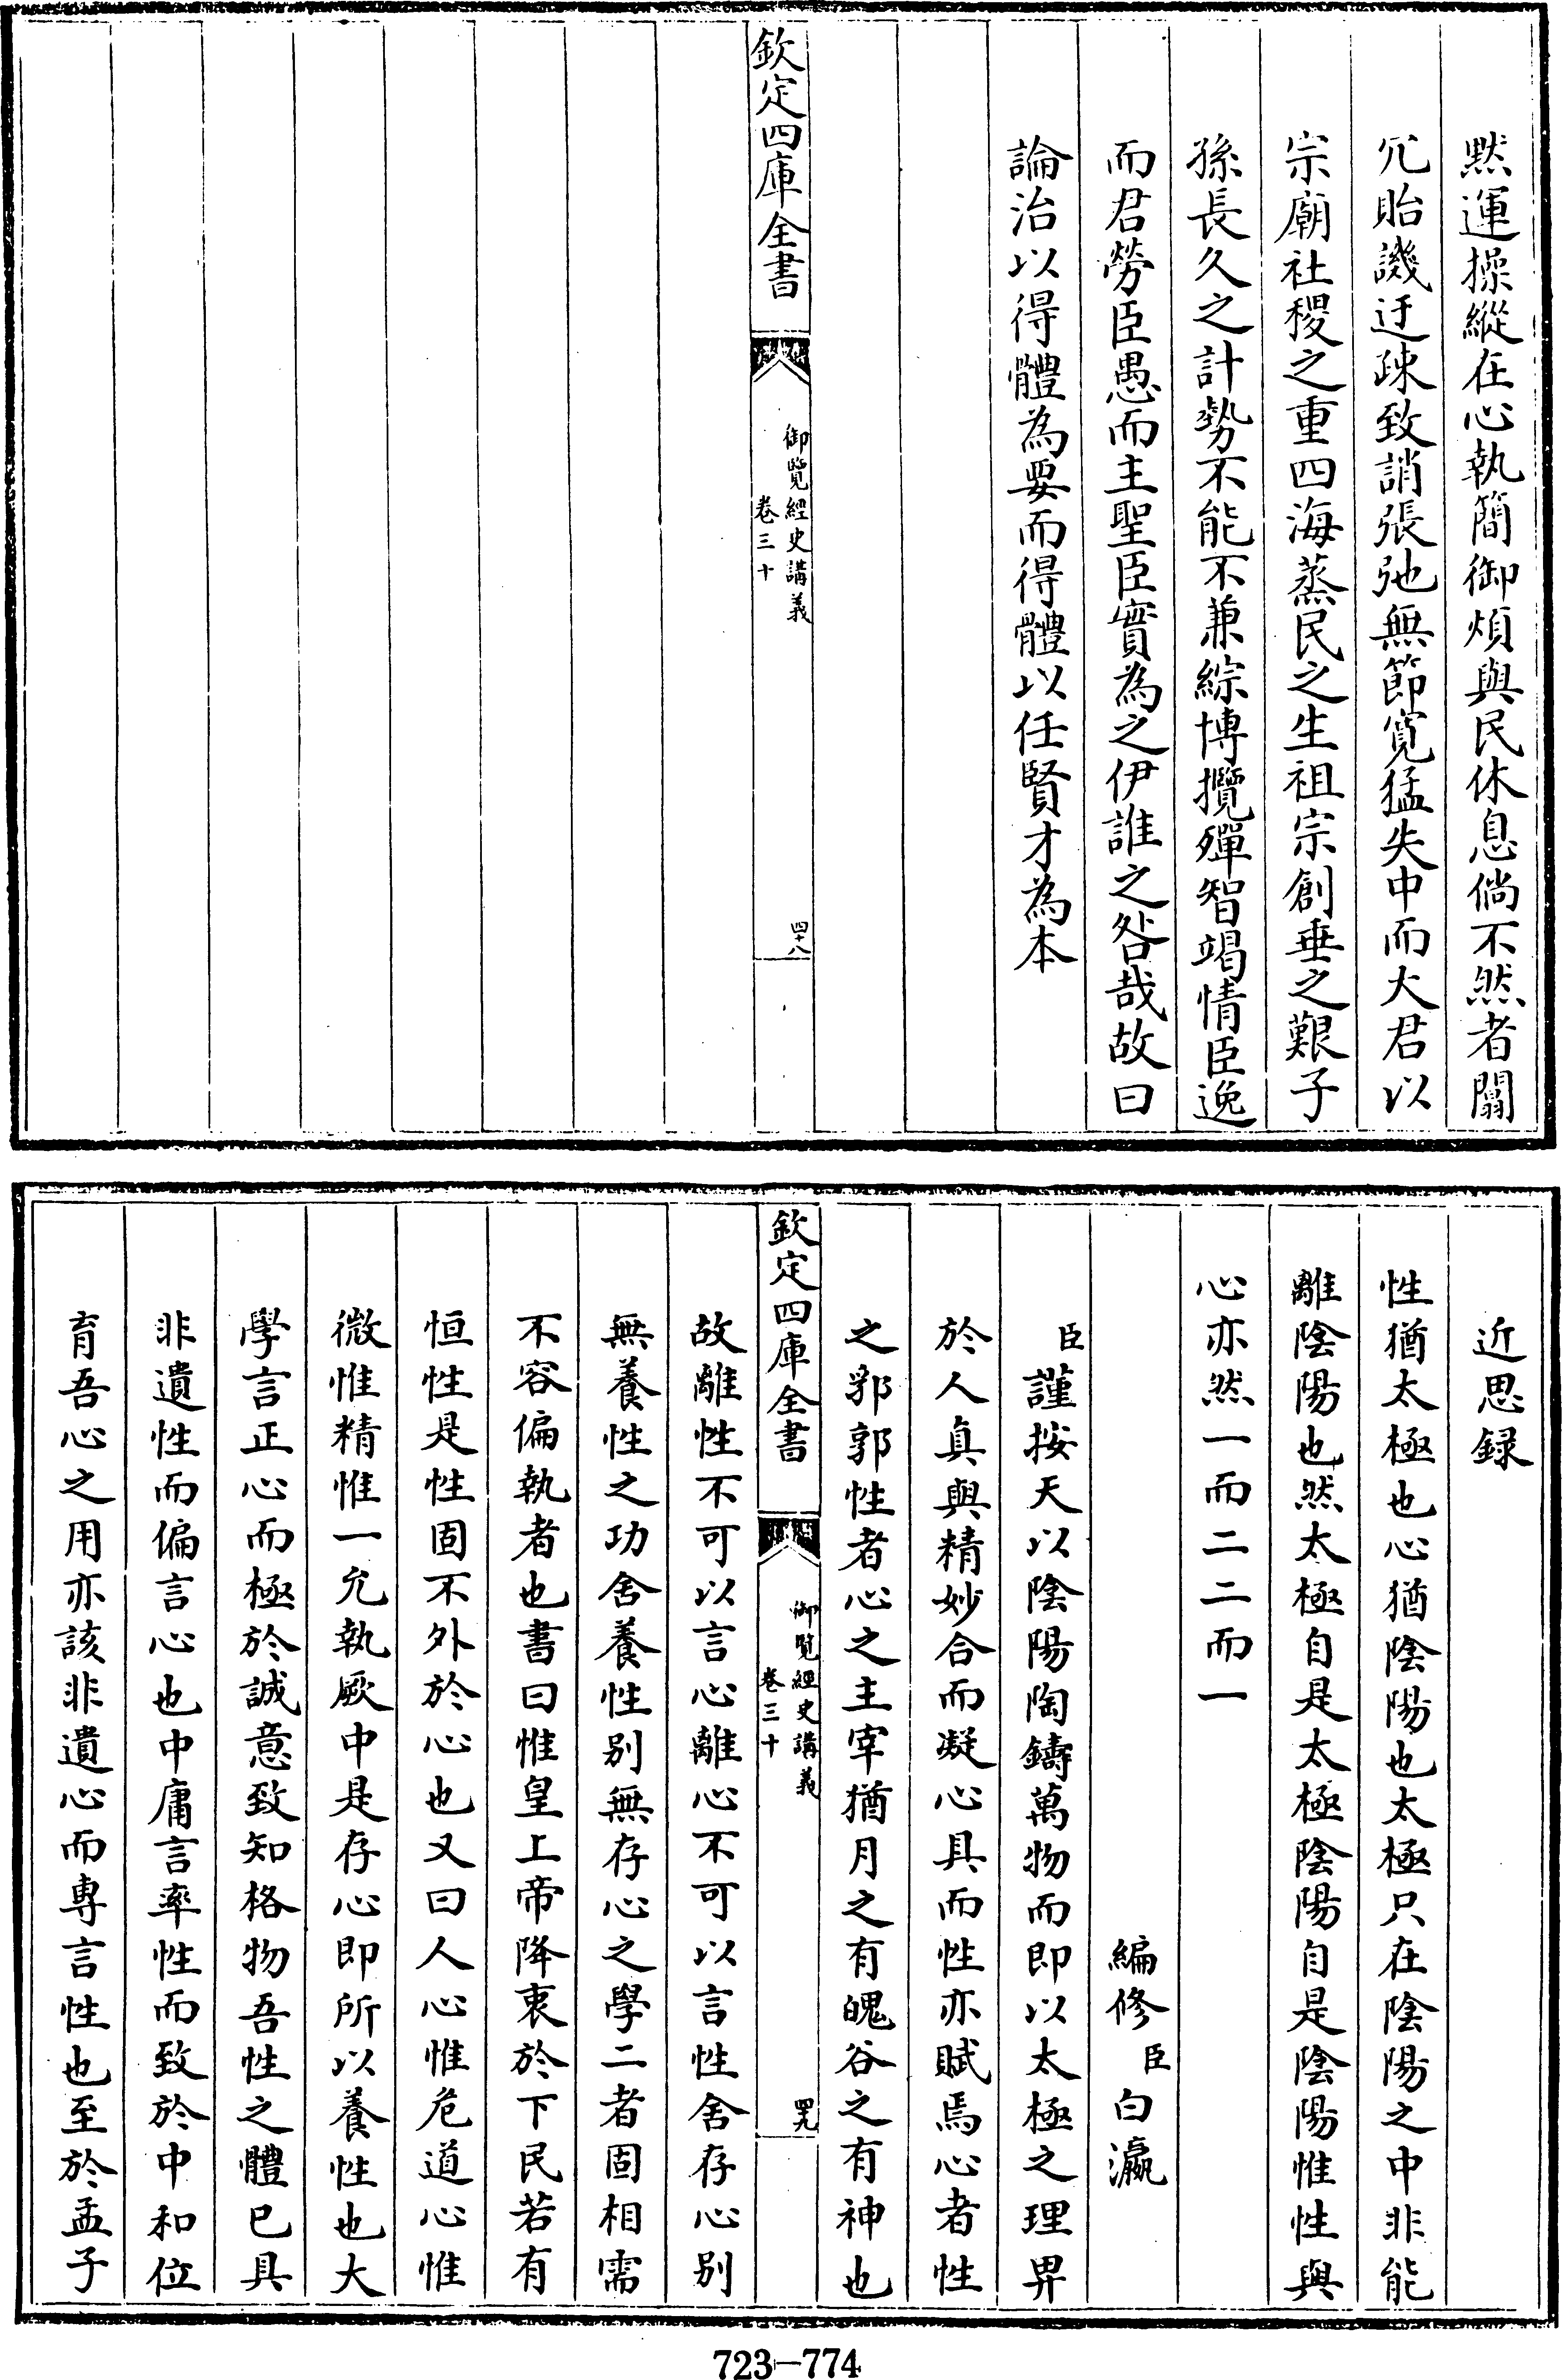 黙運操縱在心執簡御煩與民休息倘不然者闒
冗貽譏迂疎致誚張弛無節寛猛失中而大君以
宗廟社稷之重四海蒸民之生祖宗創垂之艱子
孫長久之計勢不能不兼綜博攬殫智竭情臣逸
而君勞臣愚而主聖臣實為之伊誰之咎哉故曰
論治以得體為要而得體以任賢才為本
欽定四庫全書
御覽經史講義
卷三十
四十八
近思録
性猶太極也心猶陰陽也太極只在陰陽之中非能
離陰陽也然太極自是太極陰陽自是陰陽惟性與
心亦然一而二二而一
編修臣白瀛
臣謹按天以陰陽陶鑄萬物而即以太極之理畀
於人真與精妙合而凝心具而性亦賦焉心者性
之郛郭性者心之主宰猶月之有魄谷之有神也
欽定四庫全書
御覽經史講義
卷三十
四九
故離性不可以言心離心不可以言性舍存心别
無養性之功舍養性别無存心之學二者固相需
不容偏執者也書曰惟皇上帝降衷於下民若有
恒性是性固不外於心也又曰人心惟危道心惟
微惟精惟一允執厥中是存心即所以養性也大
學言正心而極於誠意致知格物吾性之體已具
非遺性而偏言心也中庸言率性而致於中和位
育吾心之用亦該非遺心而專言性也至於孟子
723-774